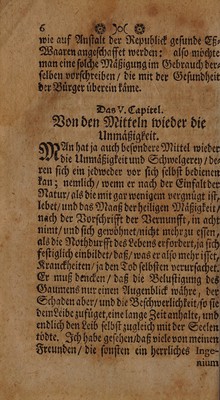 6
wie auf Anstalt der Republick gesunde Eß-
Waaren angeschaffet werden; also möchte
man eine solche Mäßigung im Gebrauch der-
selben vorschreiben/ die mit der Gesundheit
der Bürger überein käme.
Das V. Capitel.
Von den Mitteln wieder die
Unmäßigkeit.
MAn hat ja auch besondere Mittel wieder
die Unmäßigkeit und Schwelgerey/ de-
ren sich ein jedweder vor sich selbst bedienen
kan; nemlich/ wenn er nach der Einfalt der
Natur/ als die mit gar wenigem vergnügt ist/
lebet/ und das Maaß der heiligen Mäßigkeit/
nach der Vorschrifft der Vernunfft, in acht
nimt/ und sich gewöhnet/ nicht mehr zu essen/
als die Nothdurfft des Lebens erfordert/ ja sich
festiglich einbildet/ daß/ was er also mehr isset/
Kranckheiten/ ja den Tod selbsten verursachet.
Er muß dencken/ daß die Belustigung des
Gaumens nur einen Augenblick währe, der
Schaden aber/ und die Beschwerlichkeit/ so sie
dem Leibe zufüget/ eine lange Zeit anhalte, und
endlich den Leib selbst zugleich mit der Seelen
tödte. Ich habe gesehen/ daß viele von meinen
Freunden/ die sonsten ein herrliches Inge-
nium